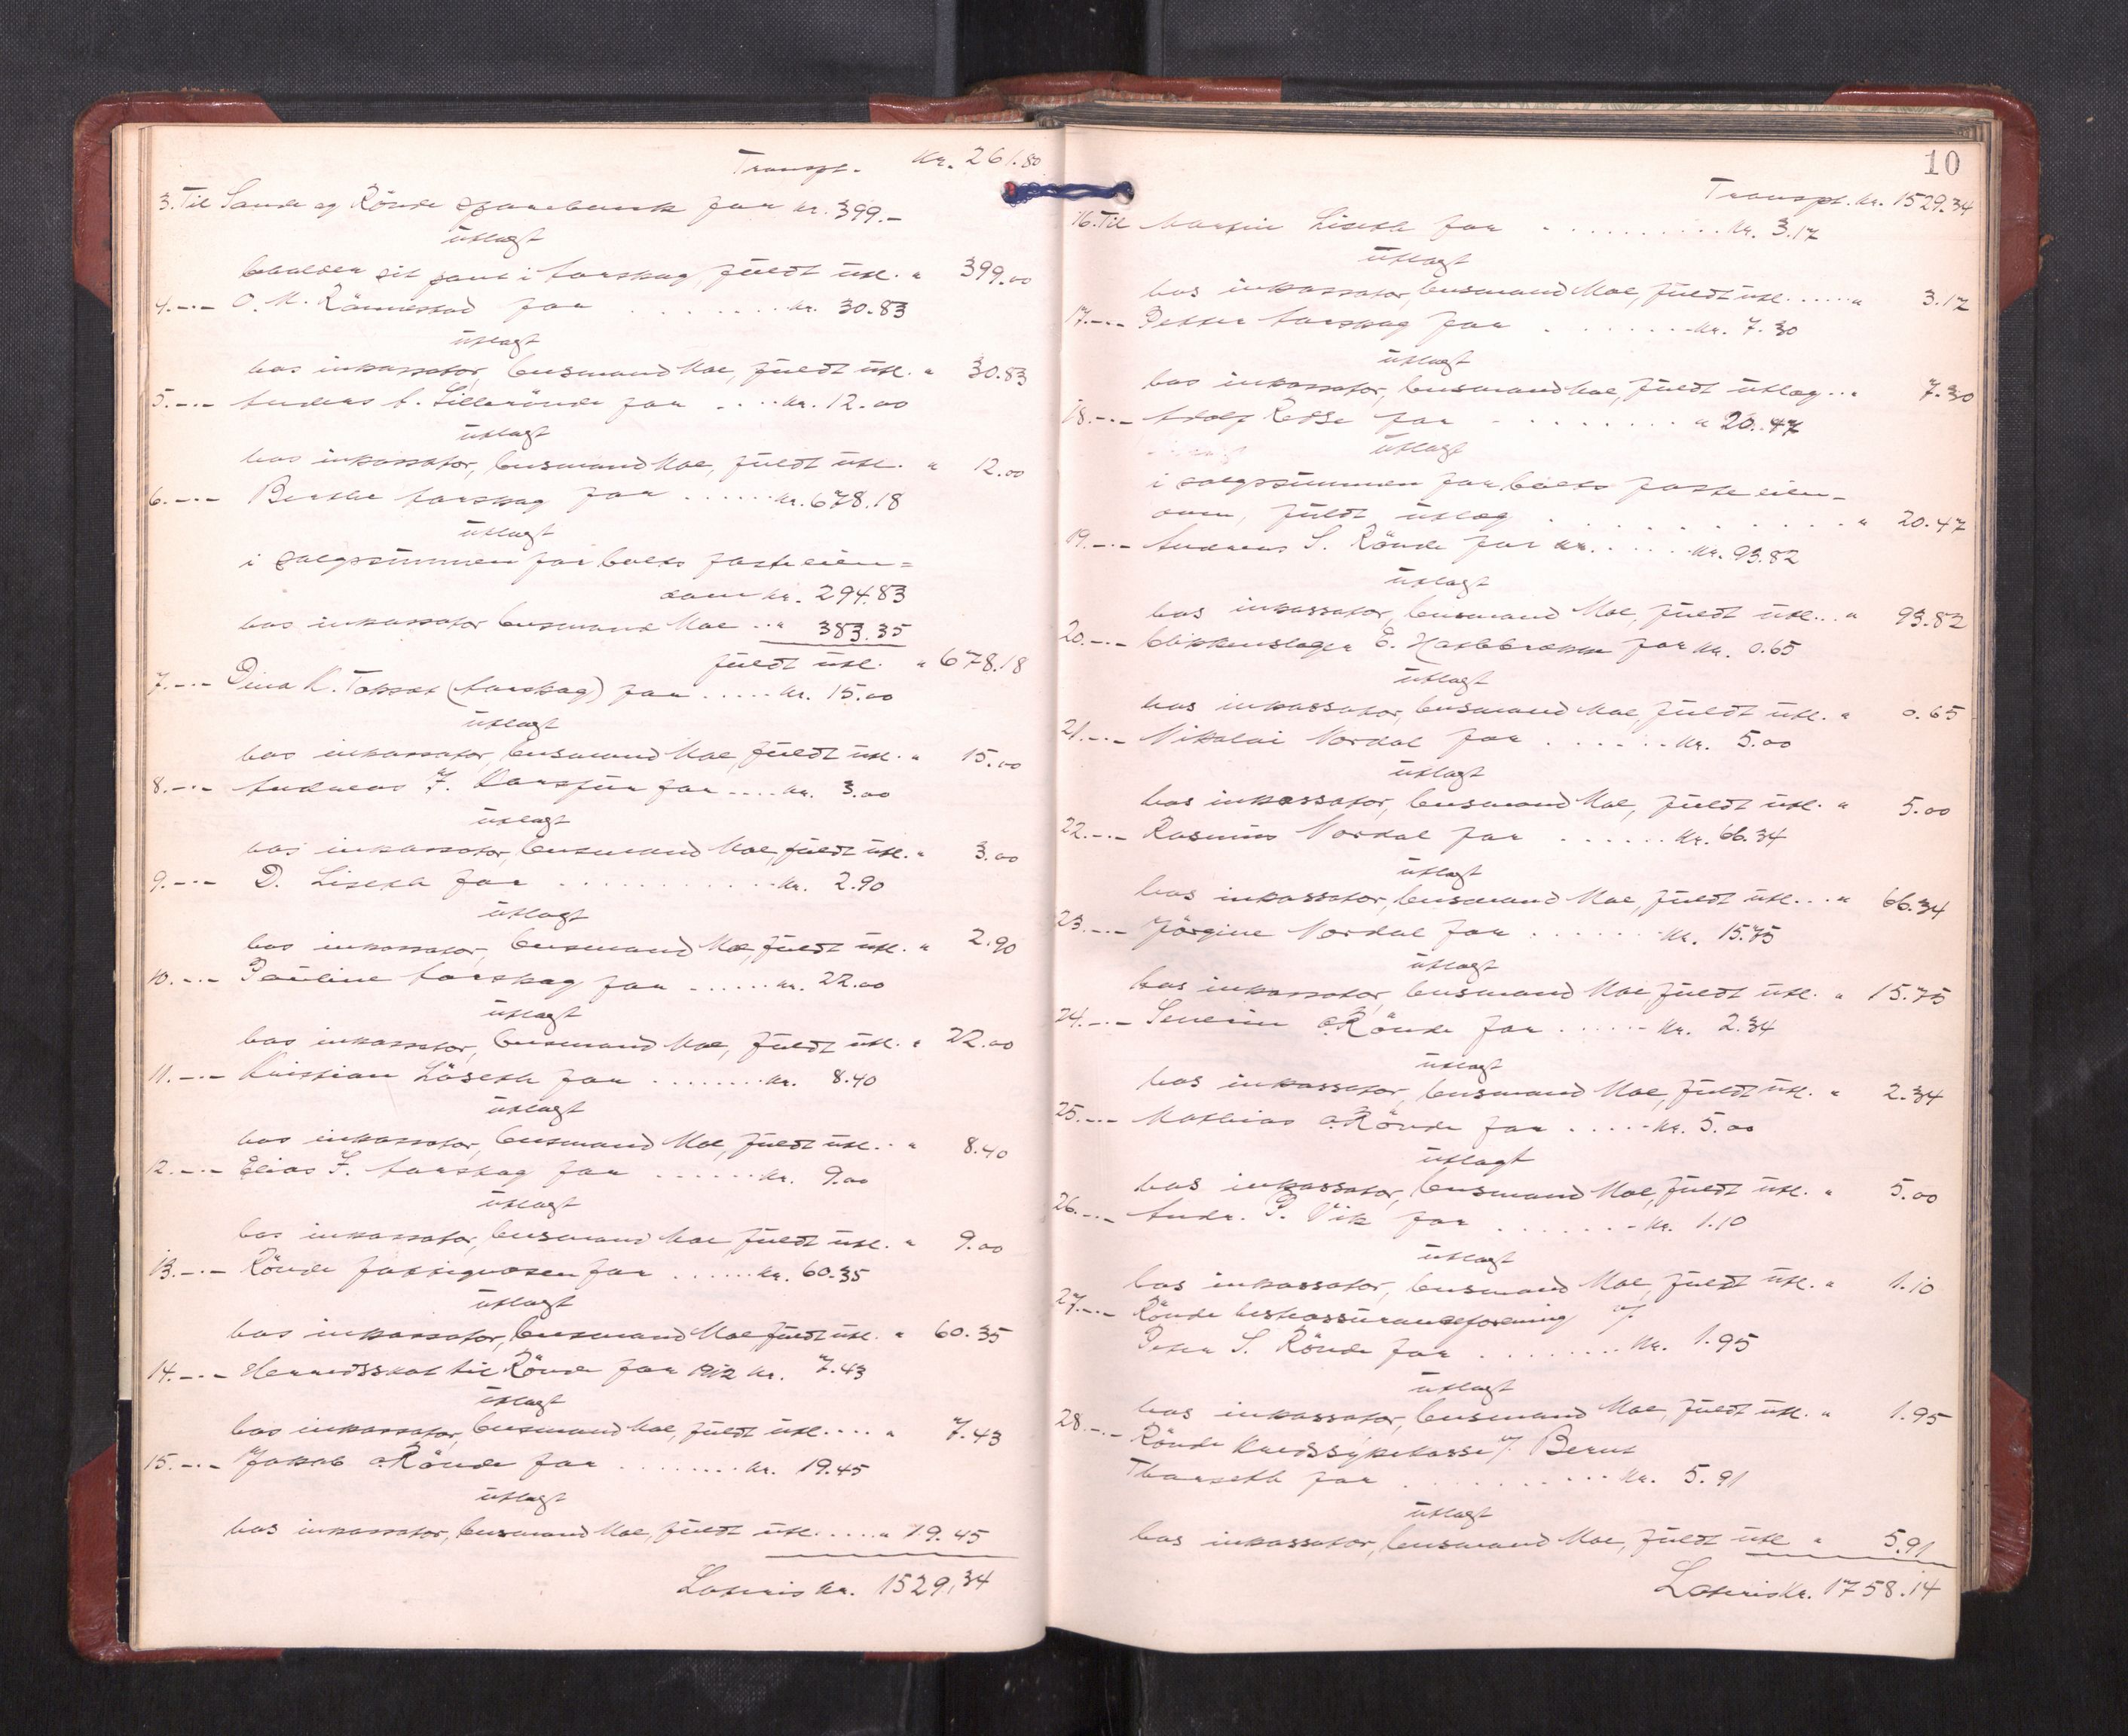 Transpt. Kr. 261.80
3. Til Sande og Rövde sparebank for kr. 399.-
utlagt
beholder sit pant i Aarskog, fuldt utl. " 399.00
4.-.- O. M. Rönnestad for ........ kr. 30.83
utlagt
hos inkassator, lensmand Moe, fuldt utl. " 30.83
5.-.- Anders A. Lillerövde for .... kr. 12.00
utlagt
hos inkassator, lensmand Moe, fuldt utl. " 12.00
6.-.- Berthe Aarskog for ...... kr. 678.18
utlagt
i salgssummen for boets faste eien=
dom kr. 294.83
hos inkassator lensmand Moe .. " 383.35
fuldt utl. " 678.18
7.-.- Dina K. (Aarskog) for ..... kr. 15.00
utlagt
hos inkassator, lensmand Moe, fuldt utl. " 15.00
8.-.- Andreas J. for .... kr. 3.00
utlagt
hos inkassator, lensmand Moe, fuldt utl. " 3.00
9.-.- D. Liseth for ........... kr. 2.90
utlagt
hos inkassator, lensmand Moe, fuldt utl. " 2.90
10.-.- Pauline Aarskog for ...... kr. 22.00
utlagt
hos inkassator, lensmand Moe, fuldt utl. " 22.00
11.-.- Kristian Löseth for ........ kr. 8.40
utlagt
hos inkassator, lensmand Moe, fuldt utl. . " 8.40
12.-.- Elias J. Aarskog for ...... kr. 9.00
utlagt
hos inkassator, lensmand Moe fuldt utl. " 9.00
13.-.- Rövde fattigvæsen for ...... kr. 60.35
utlagt
hos inkassator, lensmand Moe fuldt utl. " 60.35
14.-.- Herredsskat til Rövde for 1912 kr. 7.43
utlagt
hos inkassator, lensmand Moe, fuldt utl. ... " 7.43
15.-.- Jakob O. Rövde for ........ kr. 19.45
utlagt
hos inkassator, lensmand Moe, fuldt utl. .... " 19.45
Lateris kr. 1529,34
10
Transpt. kr. 1529.34
16. Til Martin Liseth for .......... kr. 3.17
utlagt
hos inkassator, lensmand Moe, fuldt utl. ..... " 3.17
17.-.- Petter Aarskog for ....... kr. 7.30
utlagt
hos inkassator, lensmand Moe, fuldt utlæg .. " 7.30
18.-.- Adolf for ......... " 20.47
utlagt
i salgssummen for boets faste eien-
dom, fuldt utlæg ............ " 20.47
19.-.- Andreas S. Rövde for kr. ..... kr. 93.82
utlagt
hos inkassator, lensmand Moe, fuldt utl... " 93.82
20.-.- blikkenslager E. for kr. 0.65
utlagt
hos inkassator, lensmand Moe, fuldt utl. " 0.65
21.-.- Nikolai Nordal for ...... kr. 5.00
utlagt
hos inkassator, lensmand Moe, fuldt utl. " 5.00
22.-.- Rasmus Nordal for ...... kr. 66.34
utlagt
hos inkassator, lensmand Moe, fuldt utl. .. " 66.34
23.-.- Jörgine Nordal for ....... kr. 15.75
utlagt
hos inkassator, lensmand Moe, fuldt utl. " 15.75
24.-.- Severin O. Rövde for ..... kr. 2.34
utlagt
hos inkassator, lensmand Moe, fuldt utl. " 2.34
25.-.- Mathias O. Rövde for .... kr. 5.00
utlagt
hos inkassator, lensmand Moe, fuldt utl. " 5.00
26.-.- Andr. P. Vik for ....... kr. 1.10
utlagt
hos inkassator, lensmand Moe, fuldt utl. " 1.10
27.-.- Rövde hesteassuranseforening v/
Peter S. Rövde for ........ kr. 1.95
utlagt
hos inkassator, lensmand Moe, fuldt utl. " 1.95
28.-.- Rövde kredssykekasse v/ Bernt
Thorseth for ......... kr. 5.91
utlagt
hos inkassator, lensmand Moe, fuldt utl " 5.91
Lateris kr. 1758.14